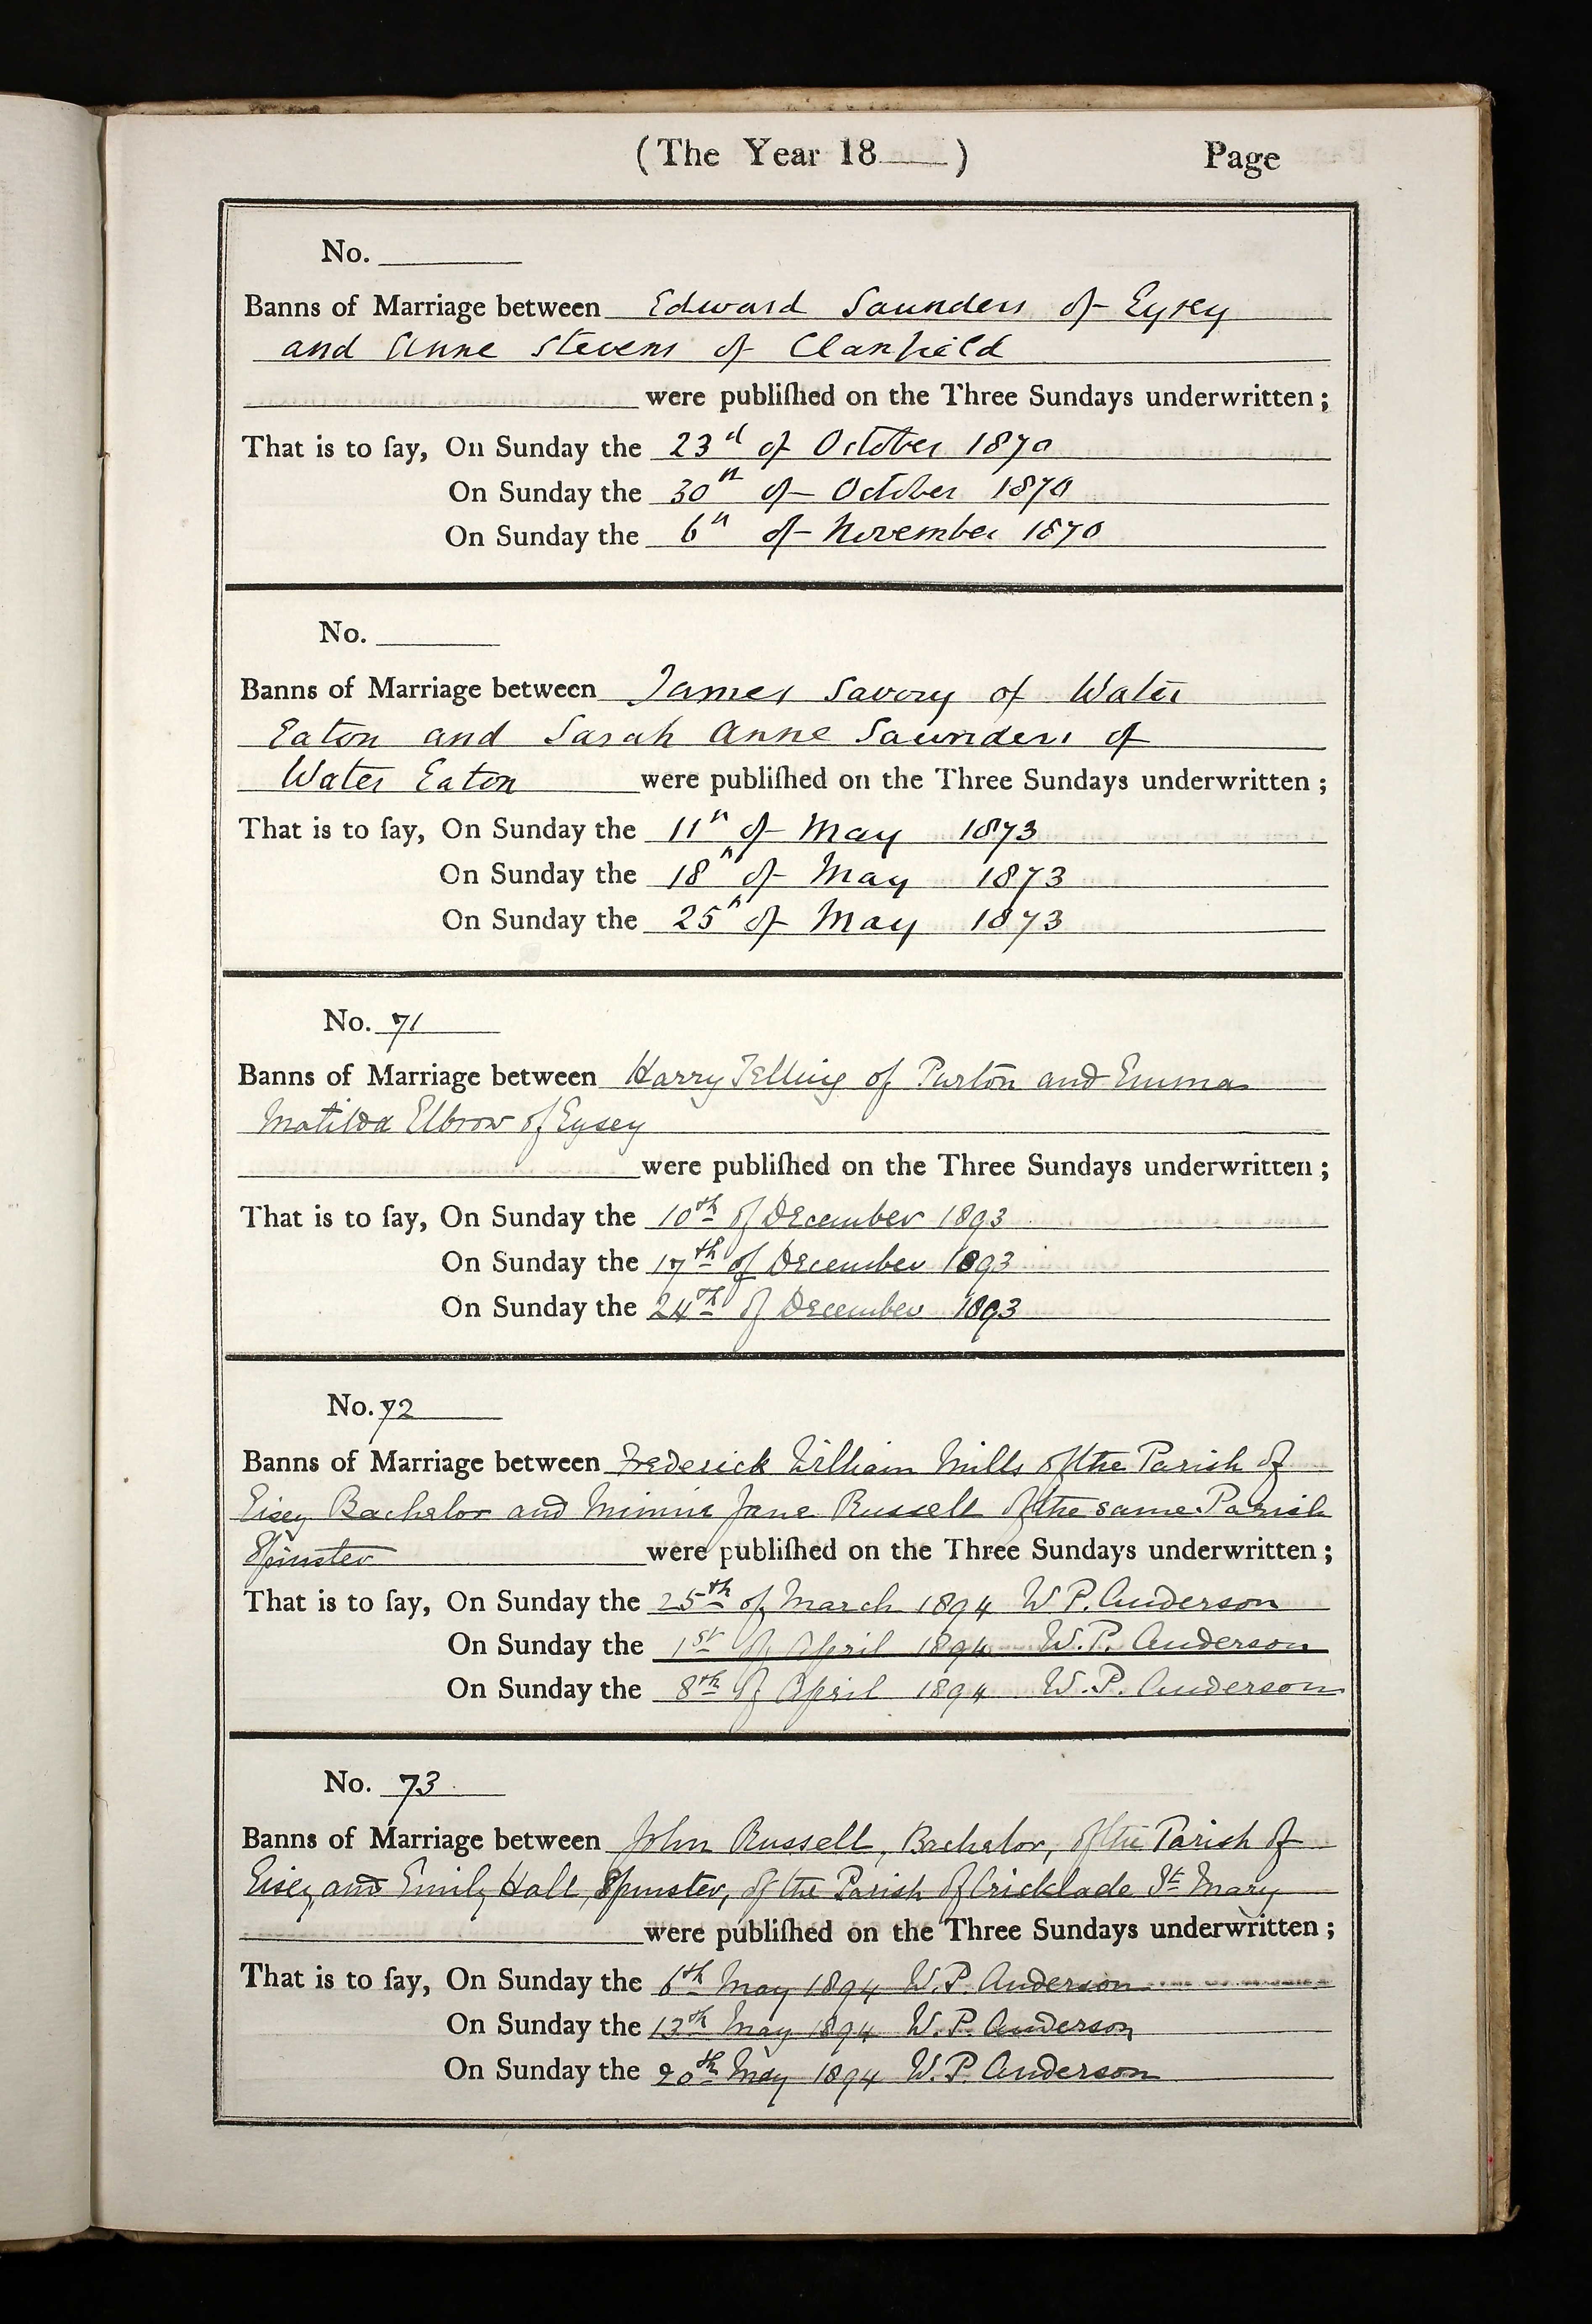 (The Year 18____) Page
No. ____
Banns of Marriage between Edward Saunders of Eysey
and Anne Stevens of Clanfield
were publiſhed on the Three Sundays underwritten;
That is to ſay, On Sunday the 23d of October 1870
On Sunday the 30th of October 1870
On Sunday the 6th of November 1870
No. ____
Banns of Marriage between James Savory of Water
Eaton and Sarah Anne Saunders of
Water Eaton were publiſhed on the Three Sundays underwritten;
That is to ſay, On Sunday the 11th of May 1873
On Sunday the 18th of May 1873
On Sunday the 25th of May 1873
No. 71
Banns of Marriage between Harry Telling of Purton and Emma
Matilda Elbrow of Eysey
were publiſhed on the Three Sundays underwritten;
That is to ſay, On Sunday the 10th of December 1893
On Sunday the 17th of December 1893
On Sunday the 24th of December 1893
No. 72
Banns of Marriage between Frederick William Mills of the Parish of
Eisey Bachelor and Minnie Jane Russell of the same Parish
Spinster were publiſhed on the Three Sundays underwritten;
That is to ſay, On Sunday the 25th of March 1894 W. P. Anderson
On Sunday the 1st of April 1894 W. P. Anderson
On Sunday the 8th of April 1894 W. P. Anderson
No. 73
Banns of Marriage between John Russell, Bachelor, of the Parish of
Eisey and Emily Hall, Spinster, of the Parish of Cricklade St Mary
were publiſhed on the Three Sundays underwritten;
That is to ſay, On Sunday the 6th May 1894 W. P. Anderson
On Sunday the 13th May 1894 W. P. Anderson
On Sunday the 20th May 1894 W. P. Anderson